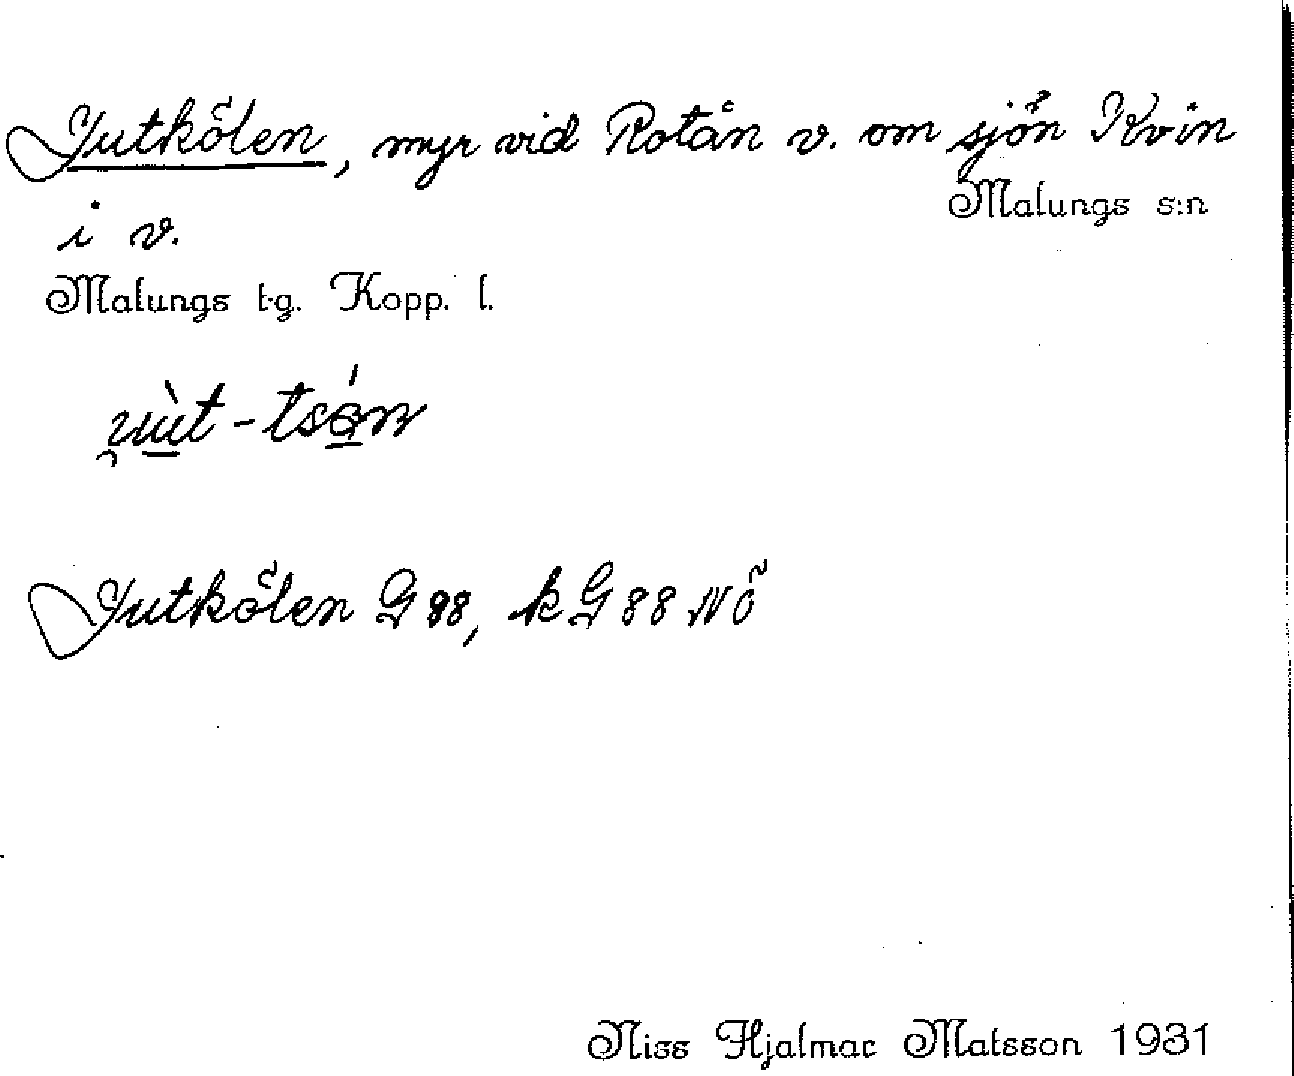 Jutkölen, myr vid Rotån v. om sjön Kvin
Malungs s:n
i v.
Malungs t-g. Kopp. l.
Jutkölen G 88, k G 88 Nö
Niss Hjalmar Matsson 1931